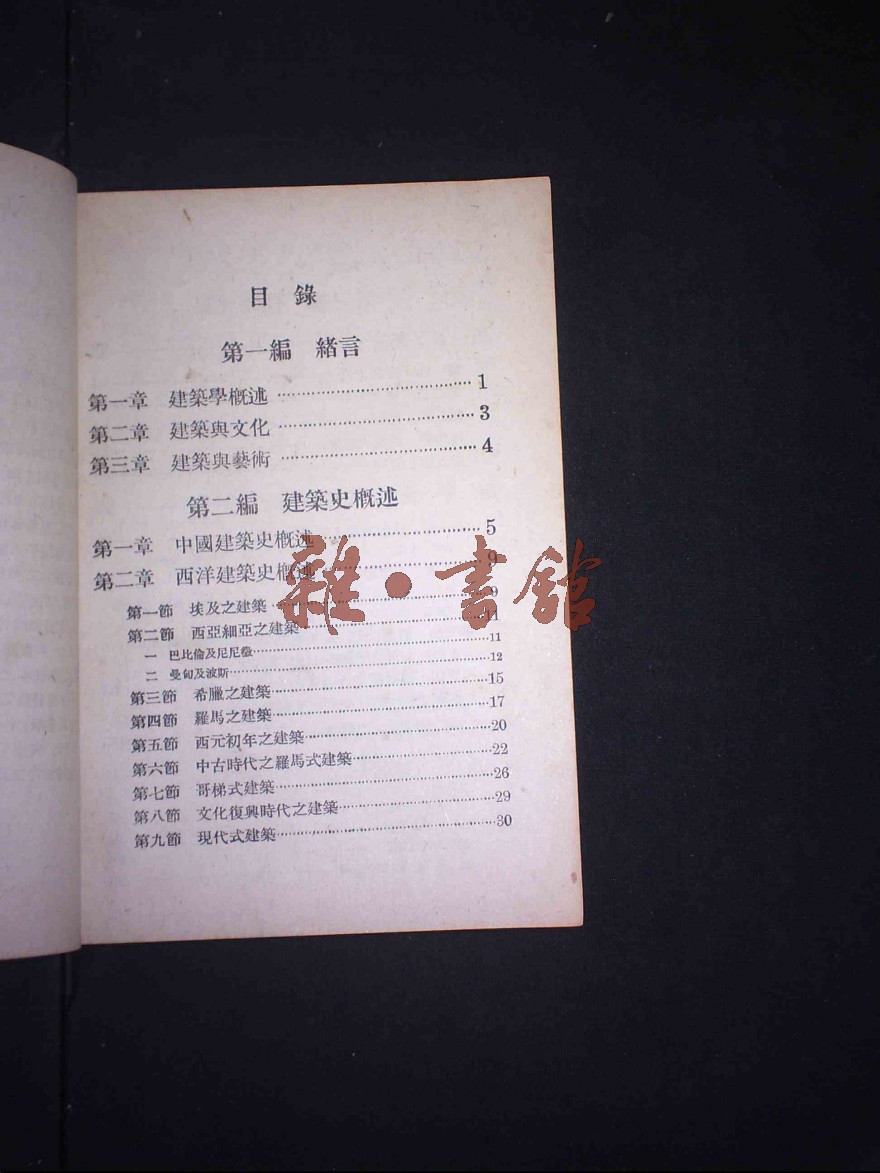 目錄
第一編 緒言
第一章 建築學概述 1
第二章 建築與文化 3
第三章 建築與藝術 4
第二編 建築史概述
第一章 中國建築史概述 5
第二章 西洋建築史概述 9
第一節 埃及之建築 9
第二節 西亞細亞之建築 11
一 巴比倫及尼尼微 11
二 曼甸及波斯 12
第三節 希臘之建築 15
第四節 羅馬之建築 17
第五節 西元初年之建築 20
第六節 中古時代之羅馬式建築 22
第七節 哥梯式建築 26
第八節 文化復興時代之建築 29
第九節 現代式建築 30
雜·書館